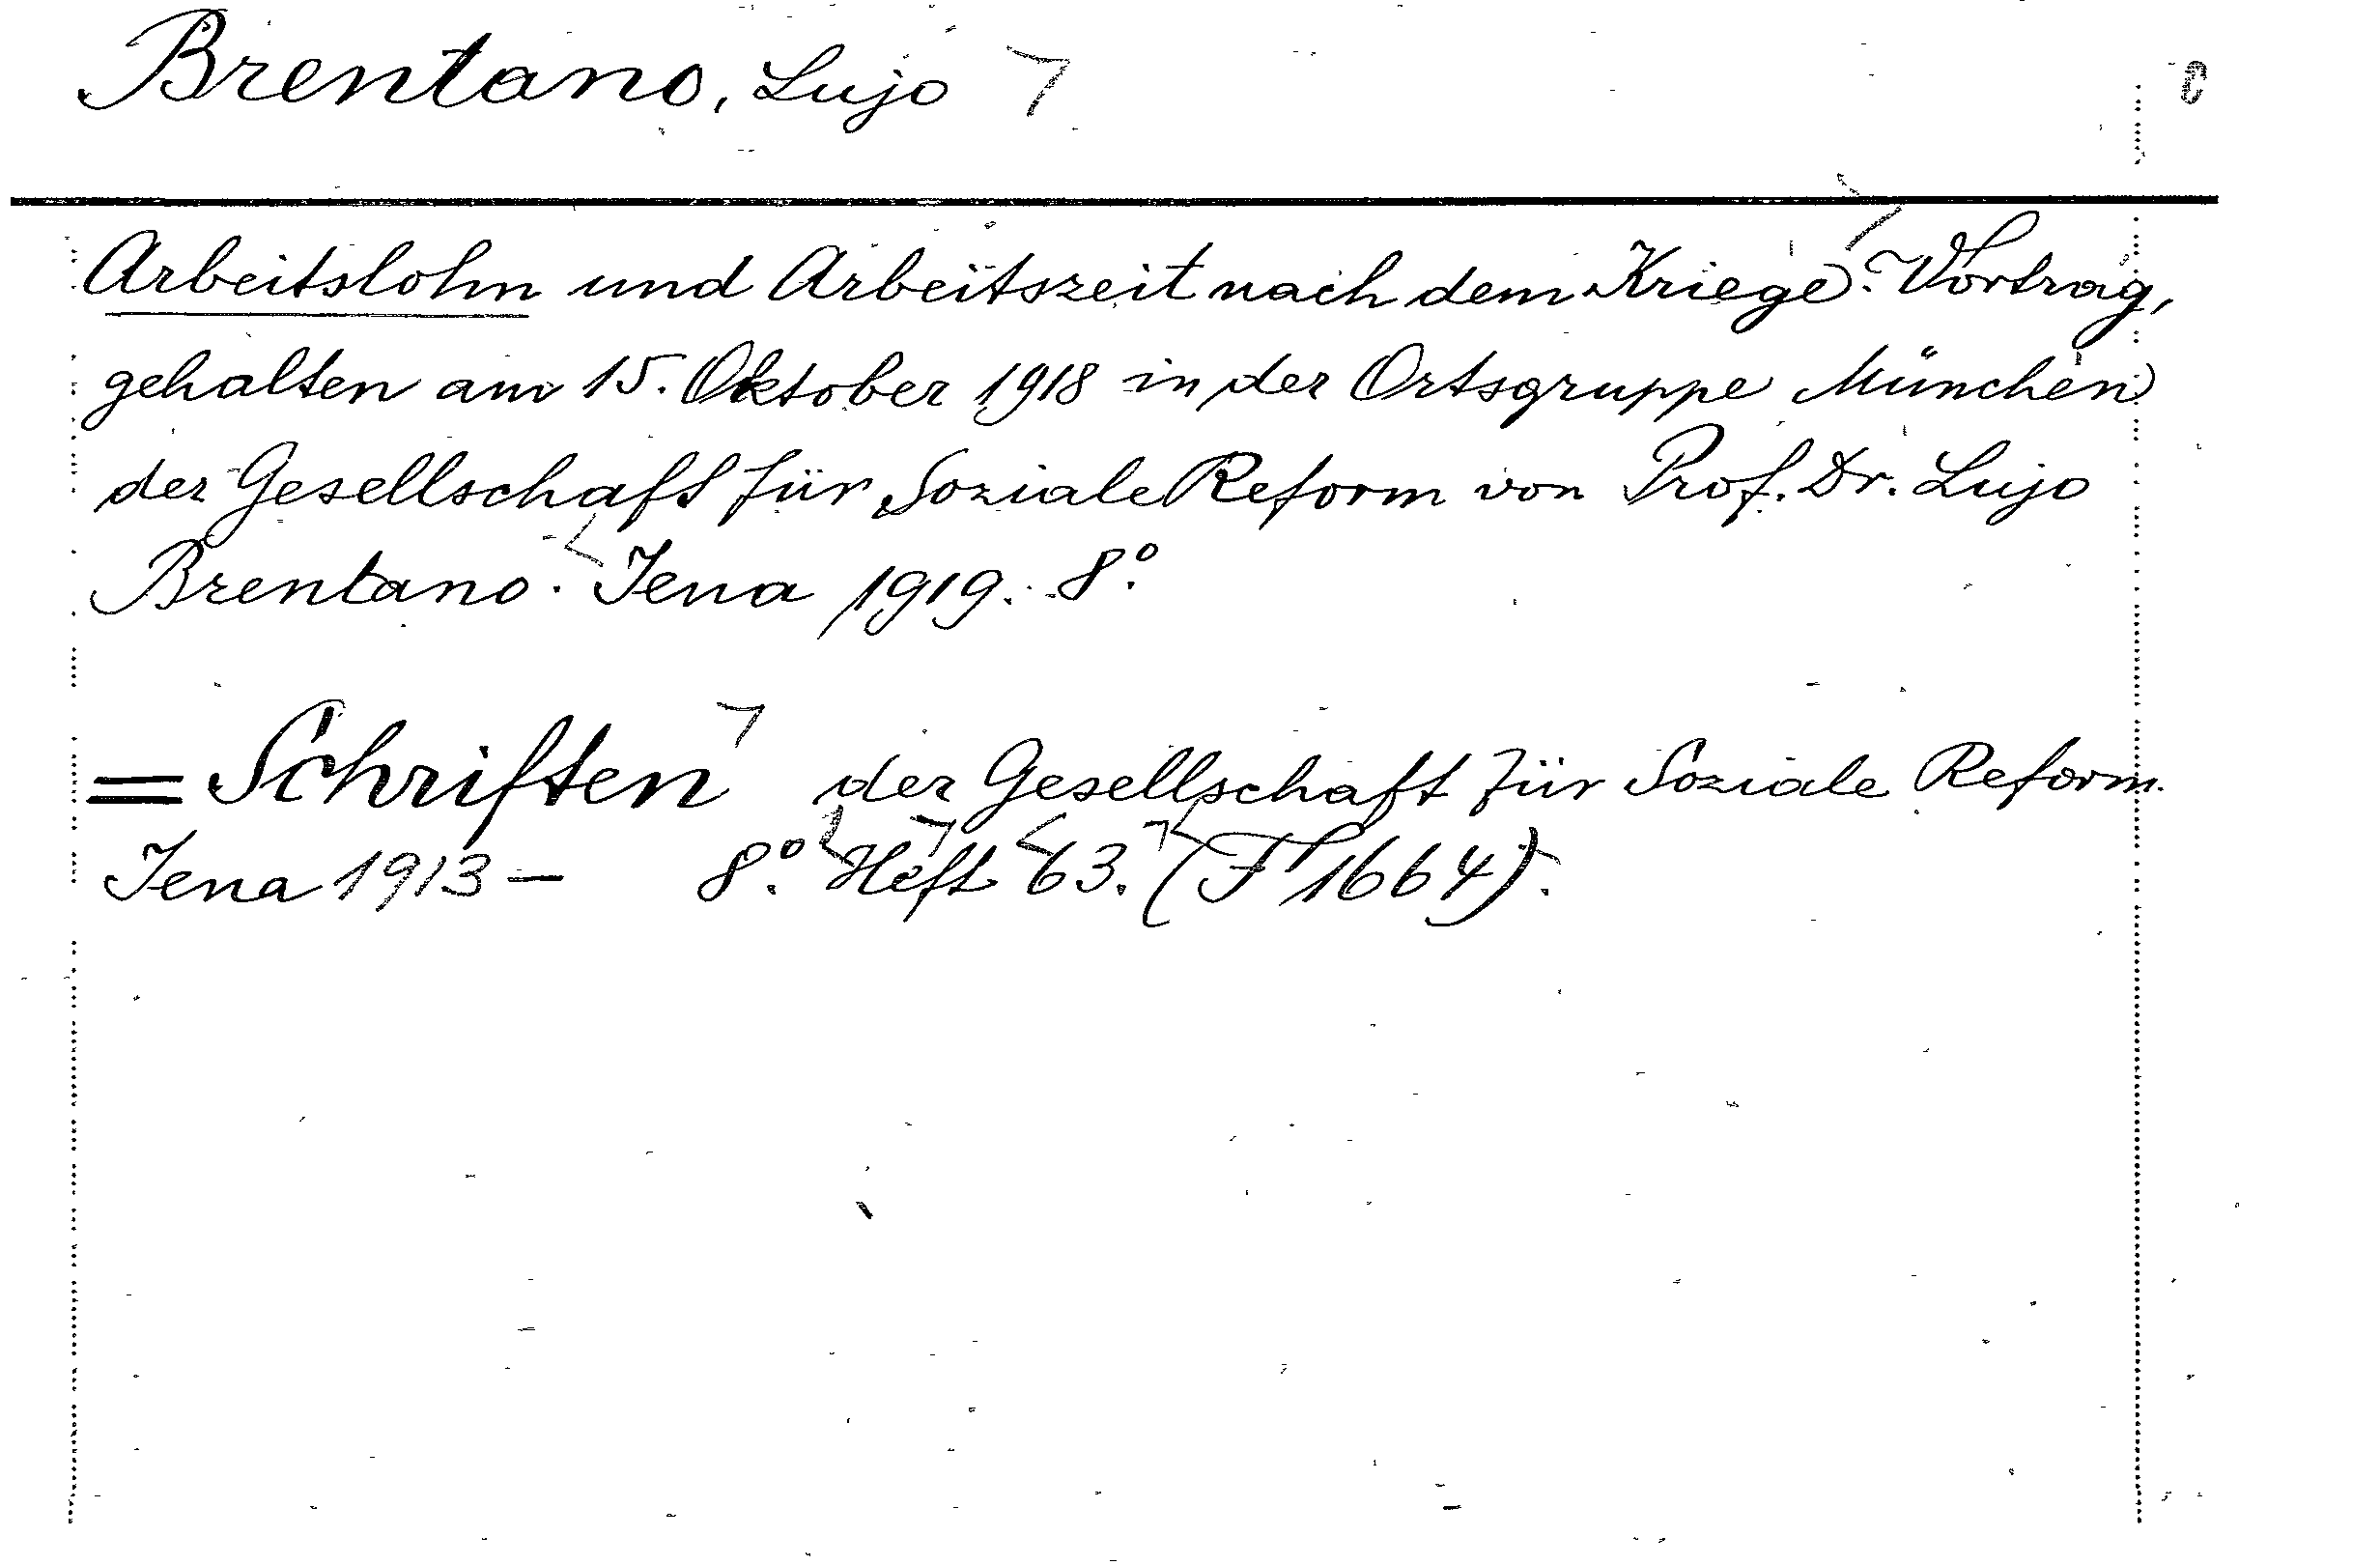 Brentano, Lujo
Arbeitslohn und Arbeitszeit nach dem Kriege. Vortrag,
gehalten am 15. Oktober 1918 in der Ortsgruppe München
der Gesellschaft für Soziale Reform von Prof. Dr. Lujo
Brentano. Jena 1919. 8°.
= Schriften der Gesellschaft für Soziale Reform.
Jena 1913 — 8°. Heft 63. (F 1664).